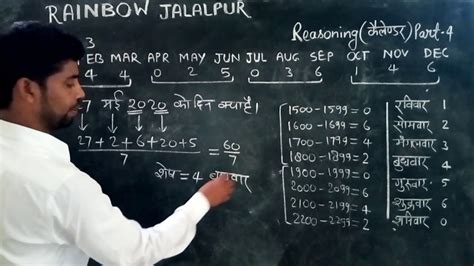 RAINBOW JALALPUR
Reasoning (कैलेण्डर) Part-4
3
EB MAR APR MAY JUN JUL AUG SEP OCT NOV DEC
4 4 0 2 5 0 3 6 1 4 6
7 मई 2020 को दिन क्या है।
27+2+6+20+5
7
= 60
7
शेष = 4 बुधवार
1500-1599=0
1600-1699=6
1700-1799=4
1800-1899=2
1900-1999=0
2000-2099=6
2100-2199=4
2200-2299=2
रविवार 1
सोमवार 2
मंगलवार 3
बुधवार 4
गुरुवार 5
शुक्रवार 6
शनिवार 0